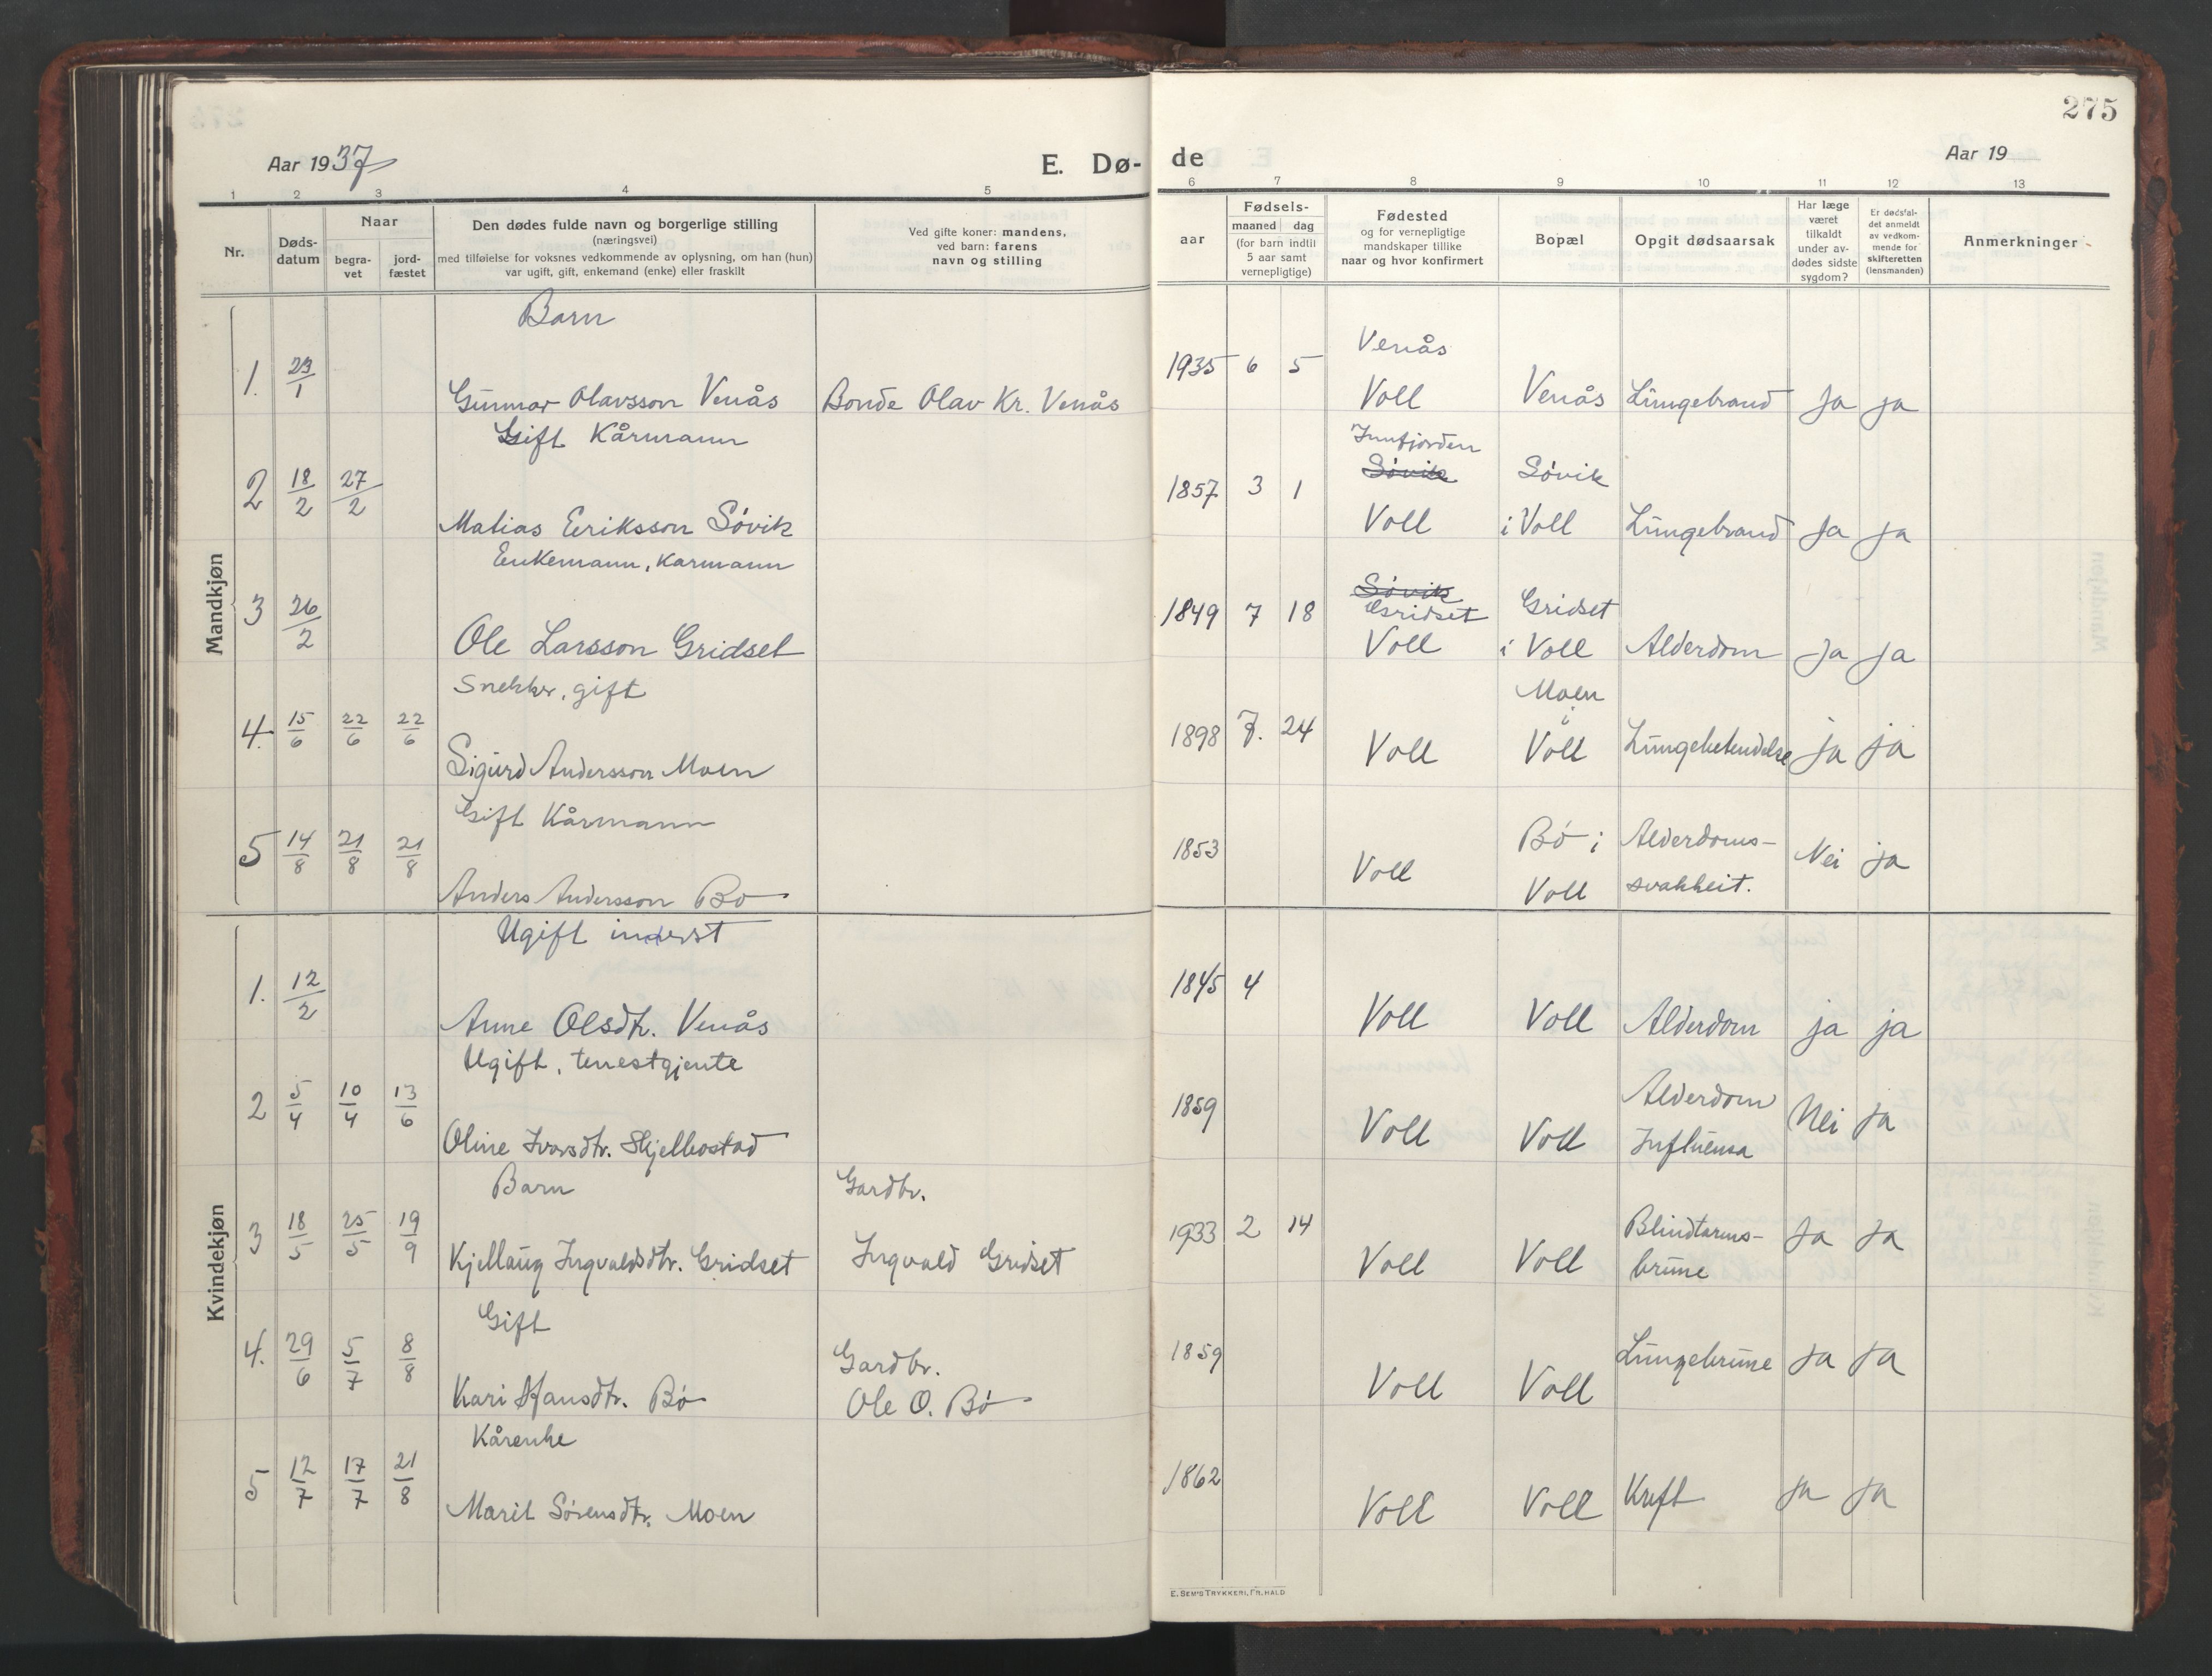 275
Aar 1937
E. Dø-
de
Aar 19
1 2 3 4 5 6 7 8 9 10 11 12 13
Nr.
Døds-
datum
Naar
begra-
vet
jord-
fæstet
Den dødes fulde navn og borgerlige stilling
(næringsvei)
med tilføielse for voksnes vedkommende av oplysning, om han (hun)
var ugift, gift, enkemand (enke) eller fraskilt
Ved gifte koner: mandens,
ved barn: farens
navn og stilling
aar
Fødsels-
maaned dag
(for barn indtil
5 aar samt
vernepligtige)
Fødested
og for vernepligtige
mandskaper tillike
naar og hvor konfirmert
Bopæl
Opgit dødsaarsak
Har læge
været
tilkaldt
under av-
dødes sidste
sygdom?
Er dødsfal-
det anmeldt
av vedkom-
mende for
skifteretten
(lensmanden)
Anmerkninger
Mandkjøn
Barn
Venås
1. 23/1 1935 6 5
Gunnar Olavsson Venås Bonde Olav Kr. Venås Voll Venås Lungebrand Ja ja
Gift Kårmann
Innfjorden
Søvik Søvik
2 18/2 27/2 1857 3 1
Matias Eeriksson Søvik Voll i Voll Lungebrand Ja ja
Enkemann, Karmann
Søvik
3 26/2 1849 7 18 Gridset Gridset
Ole Larsson Gridset Voll i Voll Alderdom Ja Ja
Snekker, gift
Moen
i
4. 15/6 22/6 22/6 1898 7. 24
Sigurd Andersson Moen Voll Voll Lungebetendelse ja ja
Gift Kårmann
5 14/8 21/8 21/8 1853 Bø i Alderdoms-
Voll Nei ja
Anders Andersson Bø Voll svakheit.
Kvindekjøn
Ugift inderst
1. 12/2 1845 4
Anne Olsdtr. Venås Voll Voll Alderdom ja ja
Ugift, tenestgjente
2 5/4 10/4 13/6 1859 Alderdom Nei Ja
Oline Ivarsdtr. Skjelbostad Voll Voll Influensa
Barn Gardbr.
3 18/5 25/5 19/9 1933 2 14 Blindtarms- Ja Ja
Kjellaug Ingvaldsdtr. Gridset Ingvald Gridset Voll Voll brune
Gift
4. 29/6 5/7 8/8 Gardbr. 1859 Lungebrune Ja Ja
Kari Hansdtr. Bø Ole O. Bø Voll Voll
Kårenke
5 12/7 17/7 21/8 1862
Marit Sørensdtr. Moen Voll Voll Kreft Ja Ja
E. SEM'S TRYKKERI, FR.HALD